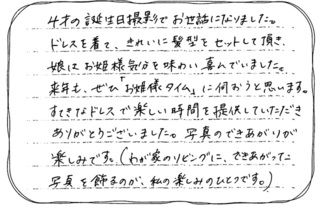 4才の誕生日撮影でお世話になりました。
ドレスを着て、きれいに髪型をセットして頂き、
娘はお姫様気分を味わい喜んでいました。
来年も、ぜひ「お姫様タイム」に伺おうと思います。
すてきなドレスで楽しい時間を提供していただき
ありがとうございました。写真のできあがりが
楽しみです。(わが家のリビングに、できあがった
写真を飾るのが、私の楽しみのひとつです。)